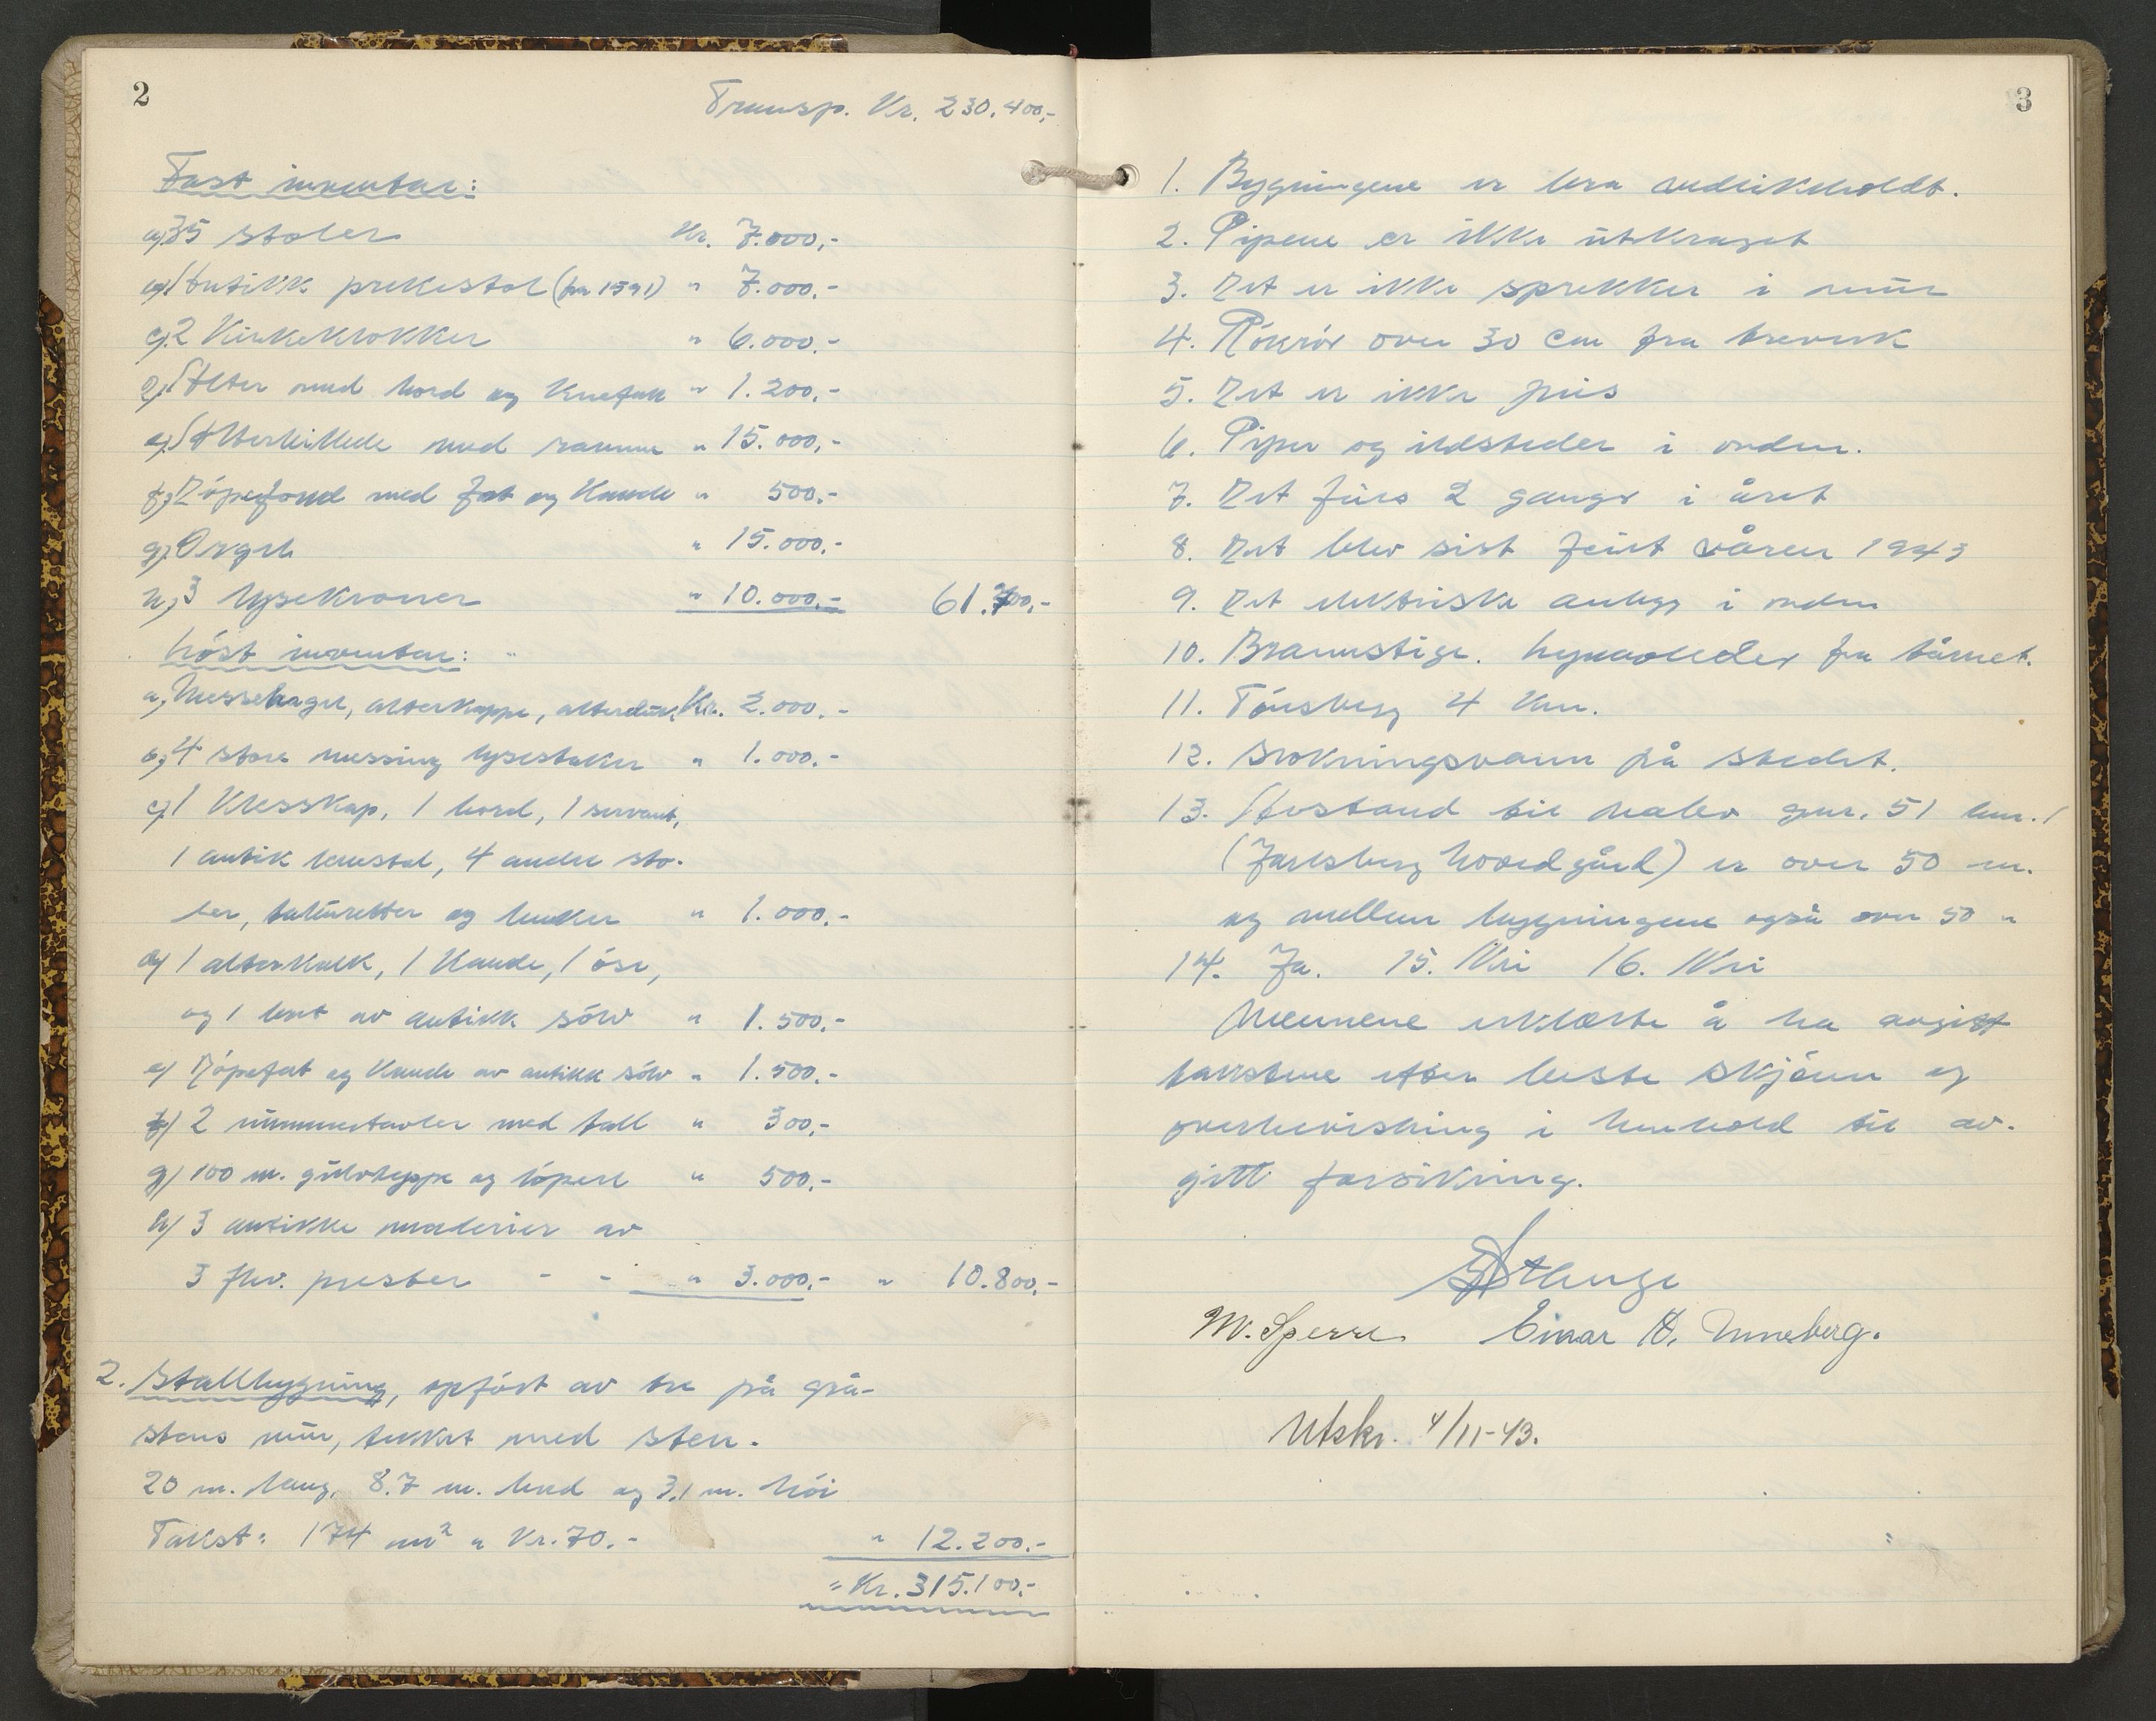 2
Transp. Kr. 230.400,-
Fast inventar:
a) 35 stoler Kr. 7.000,-
b) Antikk prekestol (fra 1591) " 7.000.-
c) 2 Kirkeklokker " 6.000.-
d) Alter med bord og knefall " 1.200.-
e) Alterbillede med ramme " 15.000,-
f) Döpefond med fat og Kande " 500.-
g) Orgel " 15.000.-
h) 3 lysekroner " 10.000.- 61.700,-
Löst inventar:
a) Messehagel, alterkappe, alterduk, Kr. 2.000.-
b) 4 store messing lysestaker " 1.000.-
c) 1 Klesskap, 1 bord, 1 servant,
1 antik lenestol, 4 andre sto-
ler, taburetter og benker " 1.000.-
d) 1 alterkalk, 1 Kande, 1 öse,
og 1 boks av antikk sölv " 1.500.-
e) Döpefat og Kande av antikk sölv " 1.500.-
f) 2 nummertavler med tall " 300,-
g) 100 m. gulvteppe og löpere " 500.-
h) 3 antikke malerier av
3 fhv. prester - - " 3.000.- " 10.800,-
2. Stallbygning, opfört av tre på grå-
stens mur, tekket med sten.
20 m. lang, 8.7 m. bred og 3,1 m. höi
Takst: 174 m² a Kr. 70.- " 12.200.-
= Kr. 315.100.-
3
1. Bygningene er bra vedlikeholdt.
2. Pipene er ikke utkraget
3. Det er ikke sprekker i mur
4. Rökrör over 30 cm fra treverk
5. Det er ikke peis
6. Piper og ildsteder i orden.
7. Det feies 2 ganger i året
8. Det blev sist feiet våren 1943
9. Det elektriske anlegg i orden
10. Brannstige. Lynavleder fra tårnet.
11. Tönsberg 4 km.
12. Slokningsvann på stedet.
13. Avstand til nabo gnr. 51 bnr. 1
(Jarlsberg Hovedgård) er over 50 m.
og mellem bygningene også over 50 "
14. Ja. 15. Nei 16. Nei
Mennene erklærte å ha avgitt
takstene efter beste skjönn og
overbevisning i henhold til av-
gitt forsikring.
M. Sperre Einar H. Unneberg.
Utskr. 4/11-43.